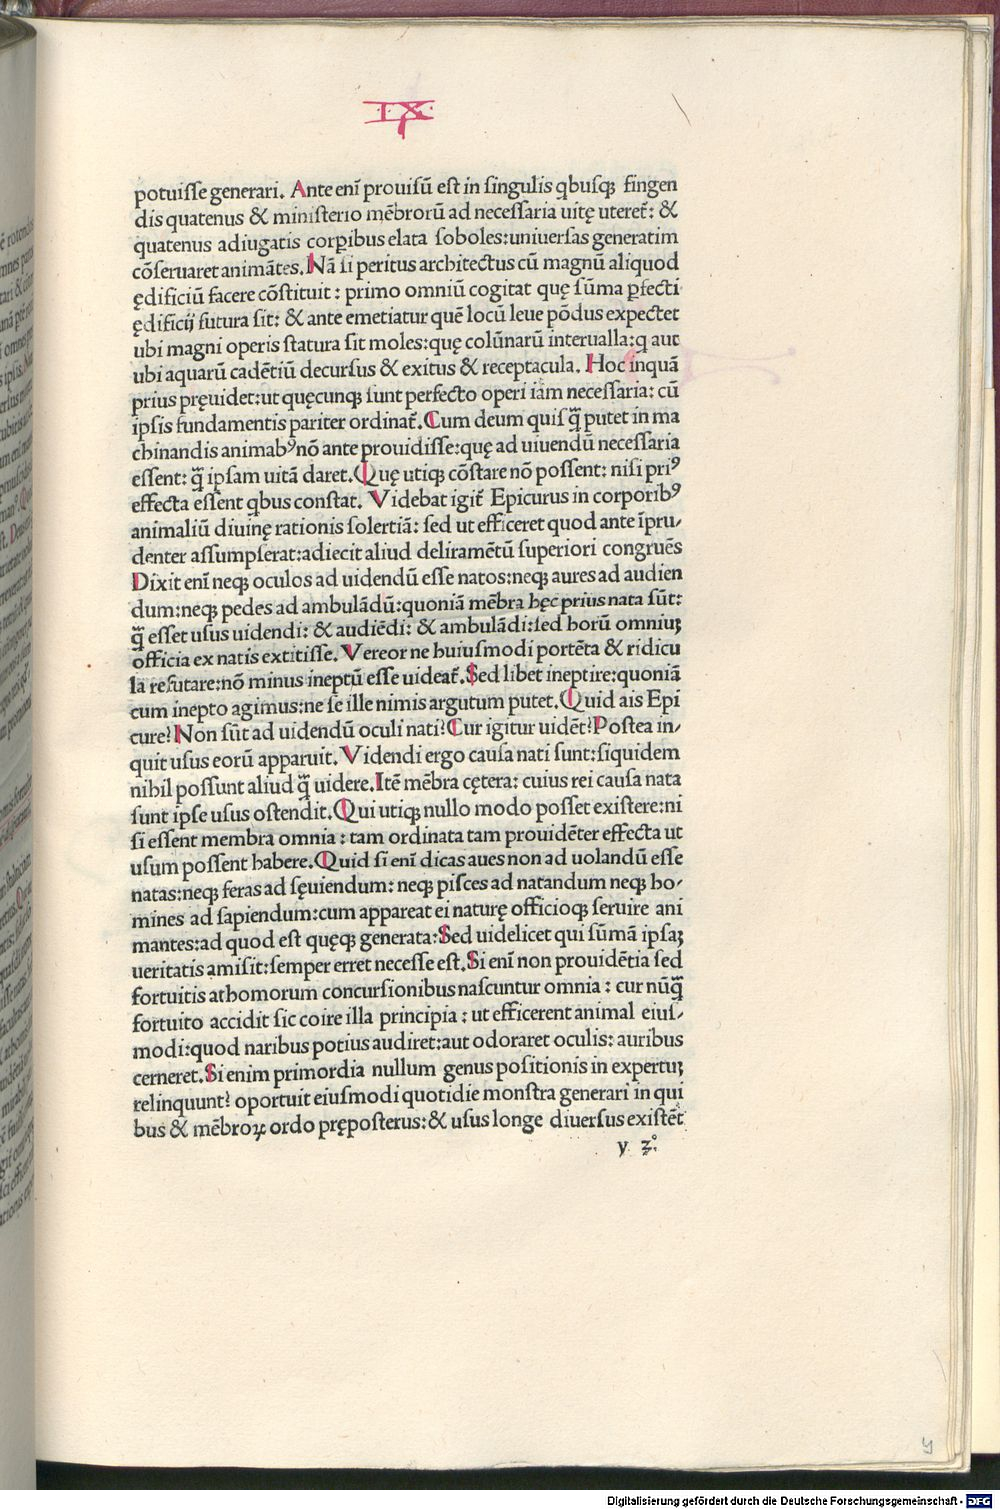 IX
potuiſſe generari. Ante enī prouiſū eſt in ſingulis qbuſqꝫ fingen
dis quatenus & miniſterio mēbrorū ad neceſſaria uitę uteret̄: &
quatenus adiugatis corꝑibus elata ſoboles:uniuerſas generatim
cōſeruaret animātes. Nā ſi peritus architectus cū magnū aliquod
ędificiū facere cōſtituit: primo omniū cogitat quę ſūma ꝑfecti
ędificij futura ſit: & ante emetiatur quē locū leue pōdus expectet
ubi magni operis ſtatura ſit moles:quę colūnarū interualla:q aut
ubi aquarū cadētiū decurſus & exitus & receptacula. Hoc inquā
prius pręuidet:ut quęcunqꝫ ſunt perfecto operi iam neceſſaria: cū
ipſis fundamentis pariter ordinat̄. Cum deum quiſq̃ putet in ma
chinandis animabꝰ nō ante prouidiſſe:quę ad uiuendū neceſſaria
eſſent: q̃ ipſam uitā daret. Quę utiqꝫ cōſtare nō poſſent: niſi priꝰ
effecta eſſent qbus conſtat. Videbat igit̄ Epicurus in corporibꝰ
animaliū diuinę rationis ſolertiā: ſed ut efficeret quod ante īpru⸗
denter aſſumpſerat:adiecit aliud deliramētū ſuperiori congruēs
Dixit enī neqꝫ oculos ad uidendū eſſe natos:neqꝫ aures ad audien
dum:neqꝫ pedes ad ambulādū:quoniā mēbra hęc prius nata ſūt:
q̃ eſſet uſus uidendi: & audiēdi: & ambulādi:ſed horū omniuꝫ
officia ex natis extitiſſe. Vereor ne huiuſmodi portēta & ridicu
la refutare:nō minus ineptū eſſe uideat̄. Sed libet ineptire:quoniā
cum inepto agimus:ne ſe ille nimis argutum putet. Quid ais Epi
cure? Non ſūt ad uidendū oculi nati? Cur igitur uidēt? Poſtea in⸗
quit uſus eorū apparuit. Videndi ergo cauſa nati ſunt:ſiquidem
nihil poſſunt aliud q̃ uidere. Itē mēbra cętera: cuius rei cauſa nata
ſunt ipſe uſus oſtendit. Qui utiqꝫ nullo modo poſſet exiſtere:ni
ſi eſſent membra omnia: tam ordinata tam prouidēter effecta ut
uſum poſſent habere. Quid ſi enī dicas aues non ad uolandū eſſe
natas:neqꝫ feras ad ſęuiendum: neqꝫ piſces ad natandum neqꝫ ho⸗
mines ad ſapiendum:cum appareat ei naturę officioqꝫ ſeruire ani
mantes:ad quod eſt quęqꝫ generata: Sed uidelicet qui ſūmā ipſaꝫ
ueritatis amiſit:ſemper erret neceſſe eſt. Si enī non prouidētia ſed
fortuitis athomorum concurſionibus naſcuntur omnia: cur nūq̃
fortuito accidit ſic coire illa principia: ut efficerent animal eiuſ⸗
modi:quod naribus potius audiret:aut odoraret oculis: auribus
cerneret. Si enim primordia nullum genus poſitionis in expertuꝫ
relinquunt? oportuit eiuſmodi quotidie monſtra generari in qui
bus & mēbroꝝ ordo prępoſterus:& uſus longe diuerſus exiſtēt
y
Digitalisierung gefördert durch die Deutsche Forschungsgemeinschaft - DFG